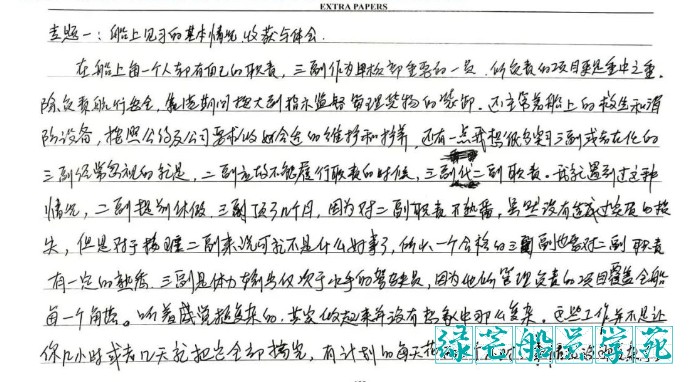 EXTRA PAPERS
专题一：船上见习的基本情况，收获与体会.
在船上每一个人都有自己的职责，三副作为甲板部重要的一员，所负责的项目更是重中之重.
除负责航行安全，靠港期间按大副指示监督管理货物的装卸. 还主管着船上的救生和消
防设备，按照公约及公司要求做好合适的维持和保养，还有一点我想很多实习三副或者在任的
三副经常忽视的就是，二副在不能履行职责的时候，三副代二副职责. 我就遇到过这种
情况，二副提前休假，三副顶了几个月，因为对二副职责不熟悉，虽然没有造成过发展的损
失，但是对于接班二副来说可就不是什么好事了，所以一个合格的三副也需对二副职责
有一定的熟悉，三副是体力输出仅次于水手的驾驶员，因为他所管理负责的项目覆盖全船
每一个角落。听着感觉挺复杂的，其实做起来并没有想象中那么复杂. 这些工作并不是让
你几小时或者几天就把它全部搞完，有计划的每天
绿芒船员学苑